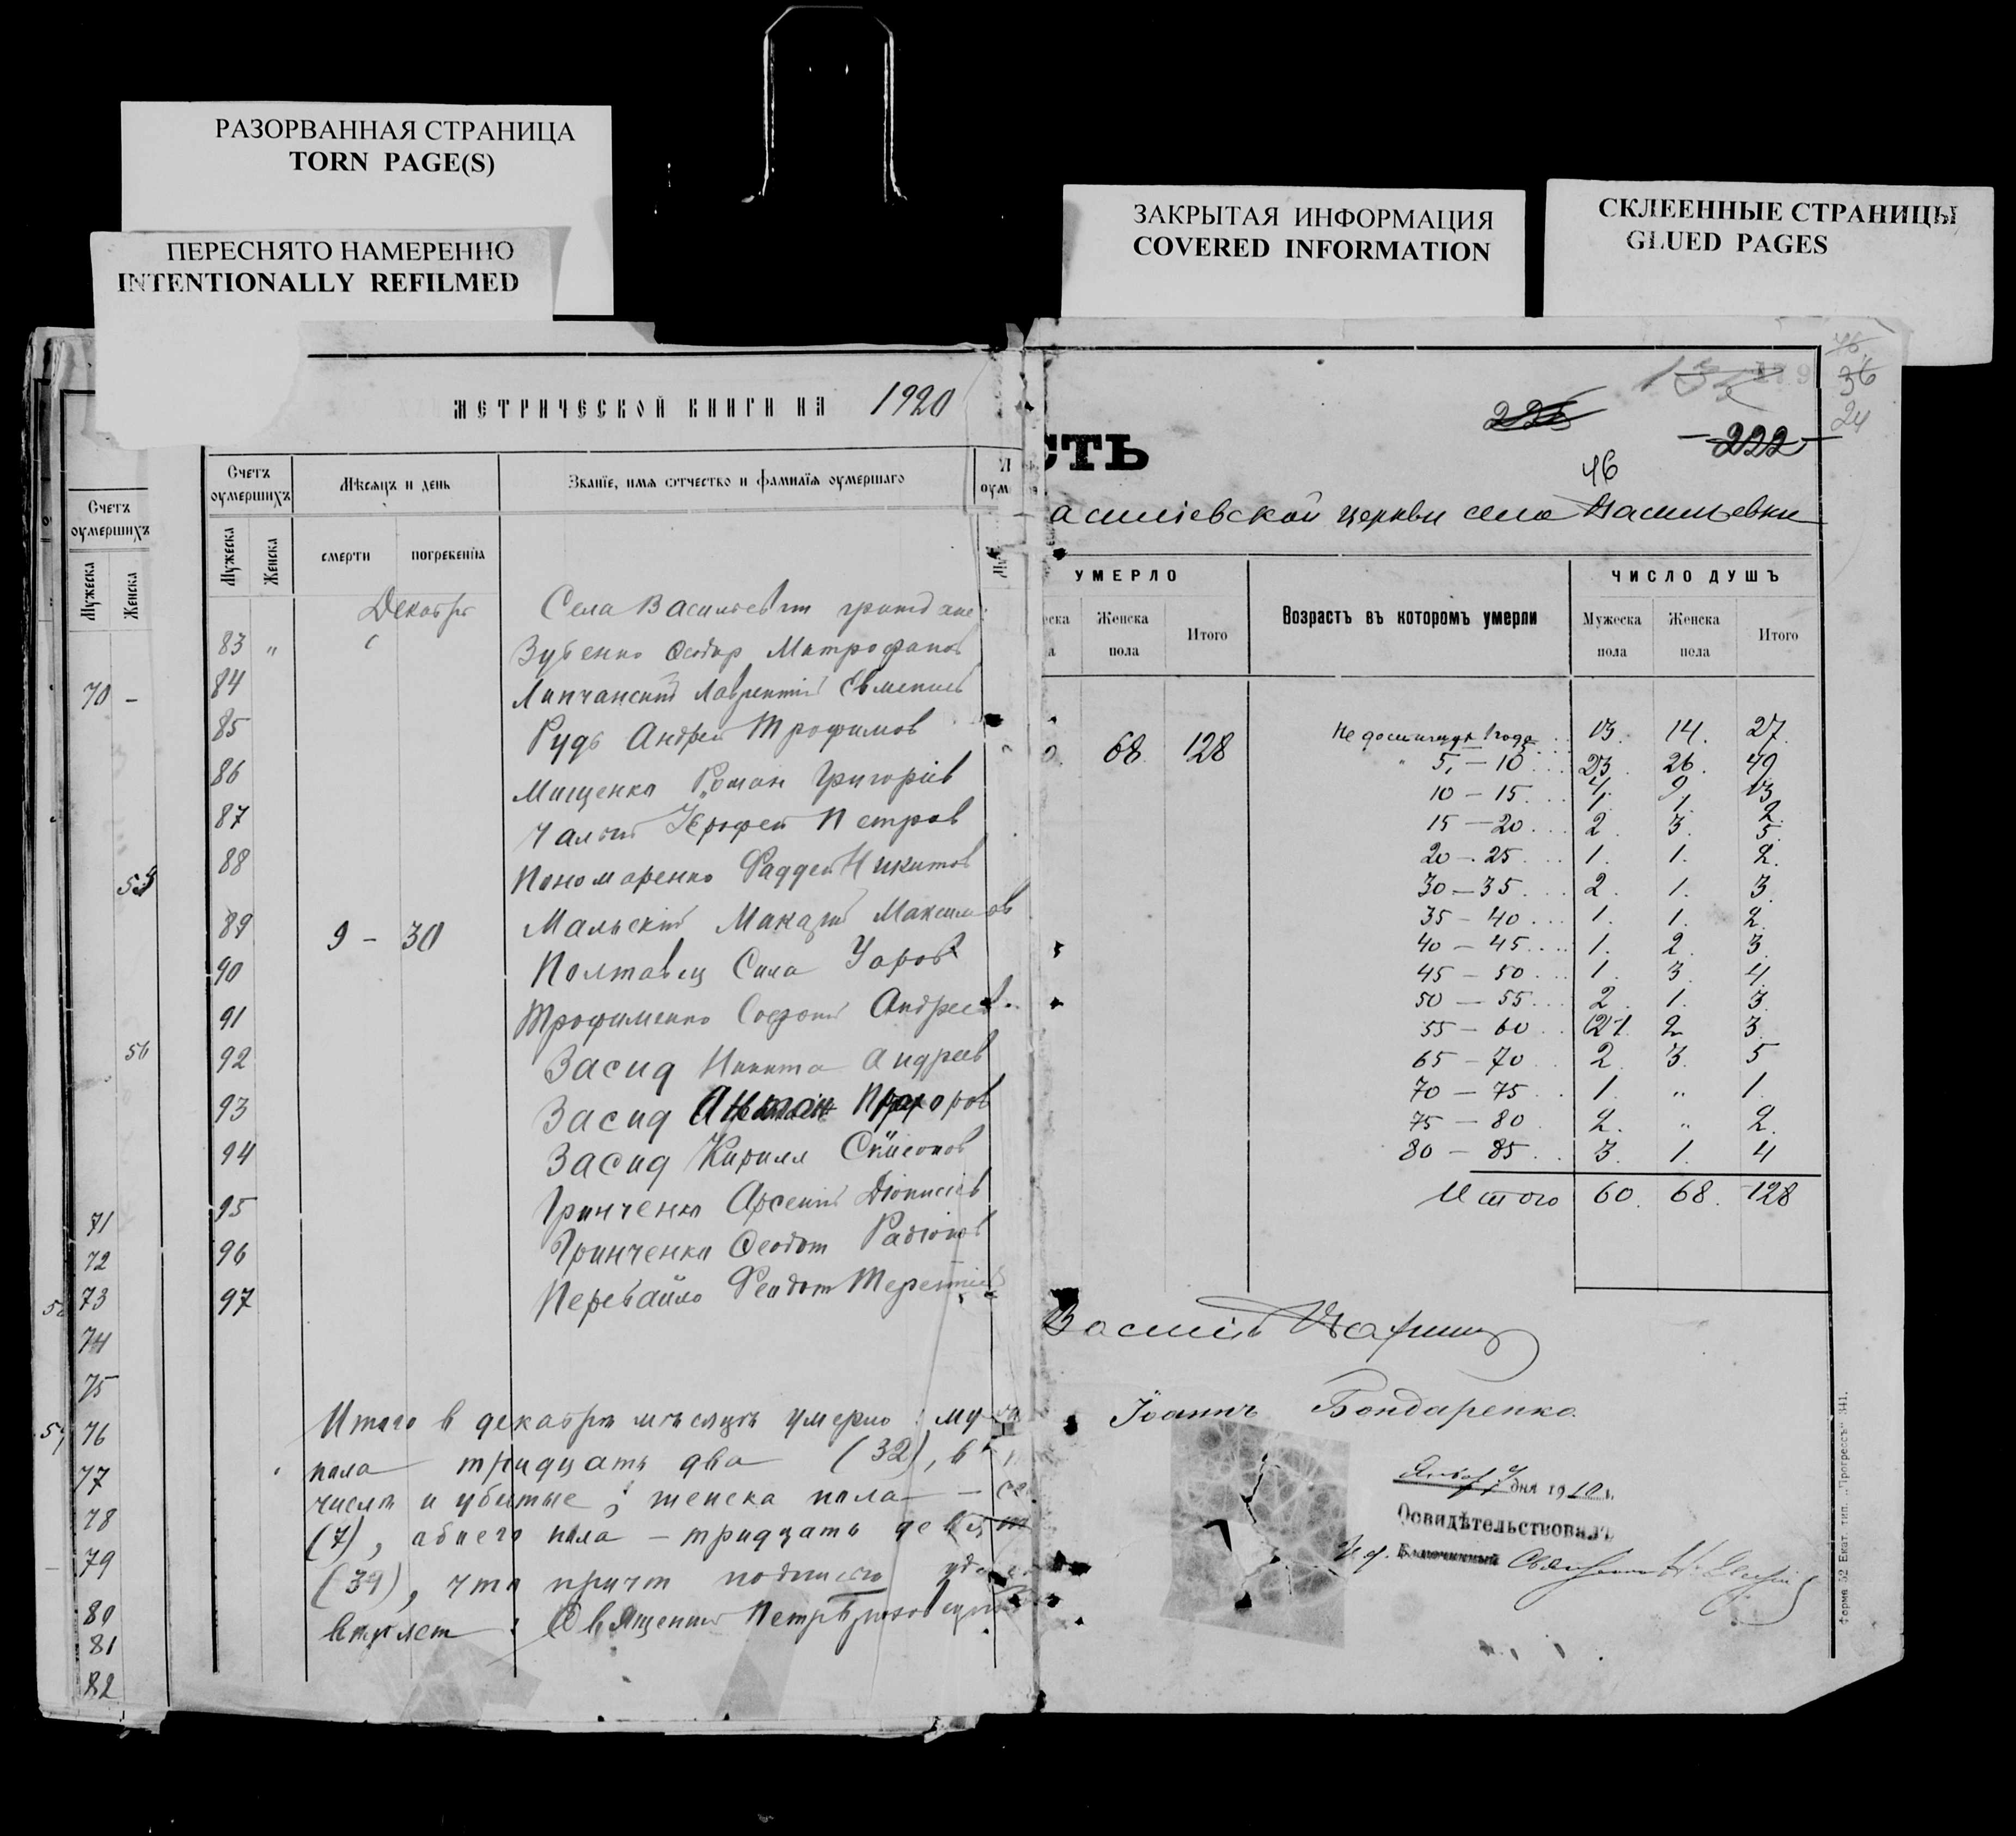 РАЗОРВАННАЯ СТРАНИЦА
TORN PAGE(S)
ПЕРЕСНЯТО НАМЕРЕННО
INTENTIONALLY REFILMED
ЗАКРЫТАЯ ИНФОРМАЦИЯ
COVERED INFORMATION
СКЛЕЕННЫЕ СТРАНИЦЫ
GLUED PAGES
МЕТРИЧЕСКОЙ КНИГИ НА 1920
Счетъ оумершихъ
Мужеска
Женска
70 -
56
71
72
73
74
75
76
77
78
79
80
81
82
Счетъ оумершихъ
Мѣсяцъ и день
Званїе, имя отчество и фамилїя оумершаго
Мужеска
Женска
смерти
погребенїя
Декабрь
Села Васильевки
83 " Зубенко Феодор Митрофанов
84 Липчанский Лаврентий Евмениев
85 Рудь Андрей Трофимов
86 Мищенко Роман Григоріев
87 Чалый Іерофей Петров
88 Пономаренко Фаддей Никитов
89 9 - 30 Мальский Макарий Максимов
90 Полтавец Сила Уаров
91 Трофименко Андреев
92 Засид Никита Андреев
93 Засид Прохоров
94 Засид Кирилл
95 Гринченко Арсений Діонисіев
96 Гринченко Феодот Радіонов
97 Перевайло Феодот Терентіев
Итого в декабре мѣсяцѣ умерло: му
пола тридцать два (32), в
числе и убитые; женска пола —
(7), обоего пола — тридцать девят
(39), что причт подписью
Священник Петр
СТЬ
226
-222-
46
36
24
асиліевской церкви села Васильевки
УМЕРЛО
Женска пола
Итого
Возрастъ въ которомъ умерли
ЧИСЛО ДУШЪ
Мужеска пола
Женска пола
Итого
68 128
Не достигши 1 года 13. 14. 27.
5, — 10 23. 26. 49
10 — 15 4. 9. 13
1. 1. 2.
15 — 20 2. 3. 5.
20 — 25 1. 1. 2.
30 — 35 2. 1. 3.
35 — 40 1. 1. 2.
40 — 45 1. 2. 3.
45 — 50 1. 3. 4.
50 — 55 2. 1. 3.
55 — 60 1. 2 3.
65 — 70 2. 3. 5
70 — 75 1. " 1.
75 — 80 2. " 2.
80 — 85 3. 1. 4
Итого 60. 68. 128
Василій
Іоаннъ Бондаренко.
дня 1910 г.
Освидѣтельствовалъ
И. д. Благочинный
Форма 52 Екат. тип. „Прогрессъ" 341.